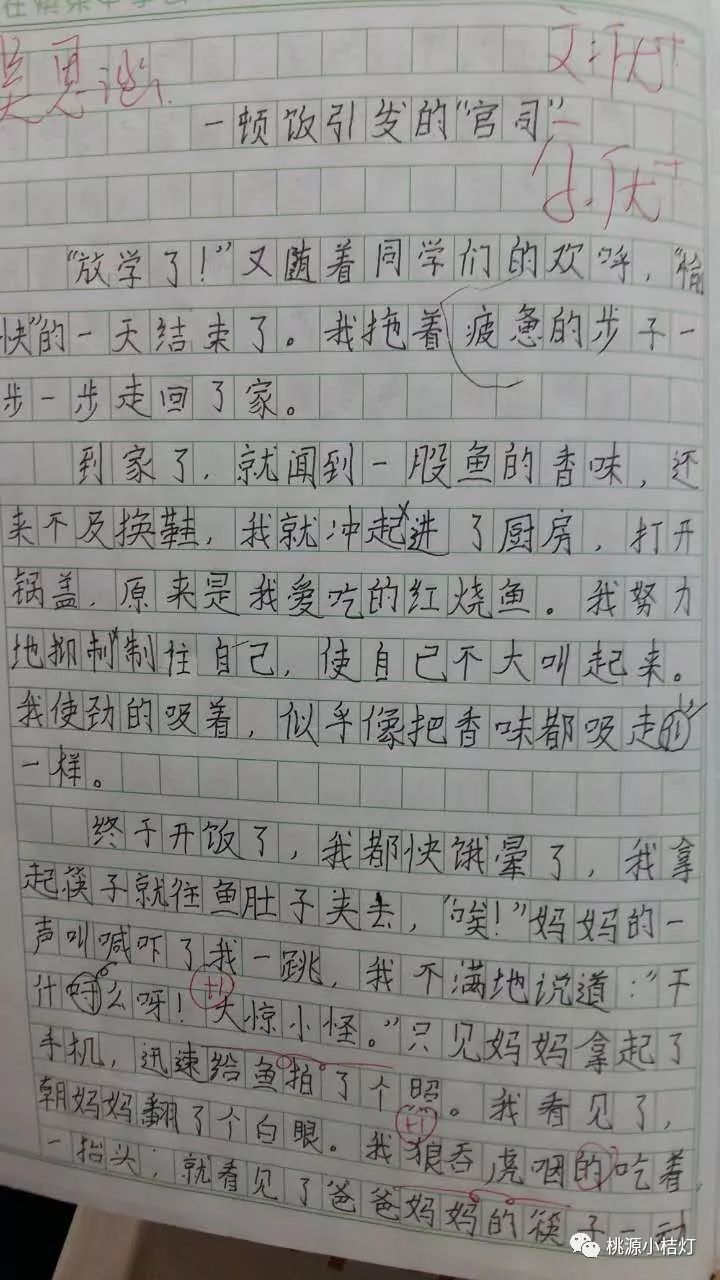 吴思谚
文:优+
一顿饭引发的“官司”
书.优+
“放学了！”又随着同学们的欢呼，“愉
快”的一天结束了。我拖着疲惫的步子一
步一步走回了家。
到家了，就闻到一股鱼的香味，还
来不及换鞋，我就冲起进了厨房，打开
锅盖，原来是我爱吃的红烧鱼。我努力
地抑制制住自己，使自己不大叫起来。
我使劲的吸着，似乎像把香味都吸走的
一样。
终于开饭了，我都快饿晕了，我拿
起筷子就往鱼肚子夹去，“唉！”妈妈的一
声叫喊吓了我一跳，我不满地说道：“干
什么呀！大惊小怪。”只见妈妈拿起了
+1
手机，迅速给鱼拍了个照。我看见了，
朝妈妈翻了个白眼。我狼吞虎咽的吃着，
+1
一抬头，就看见了爸爸妈妈的筷子一动
桃源小桔灯